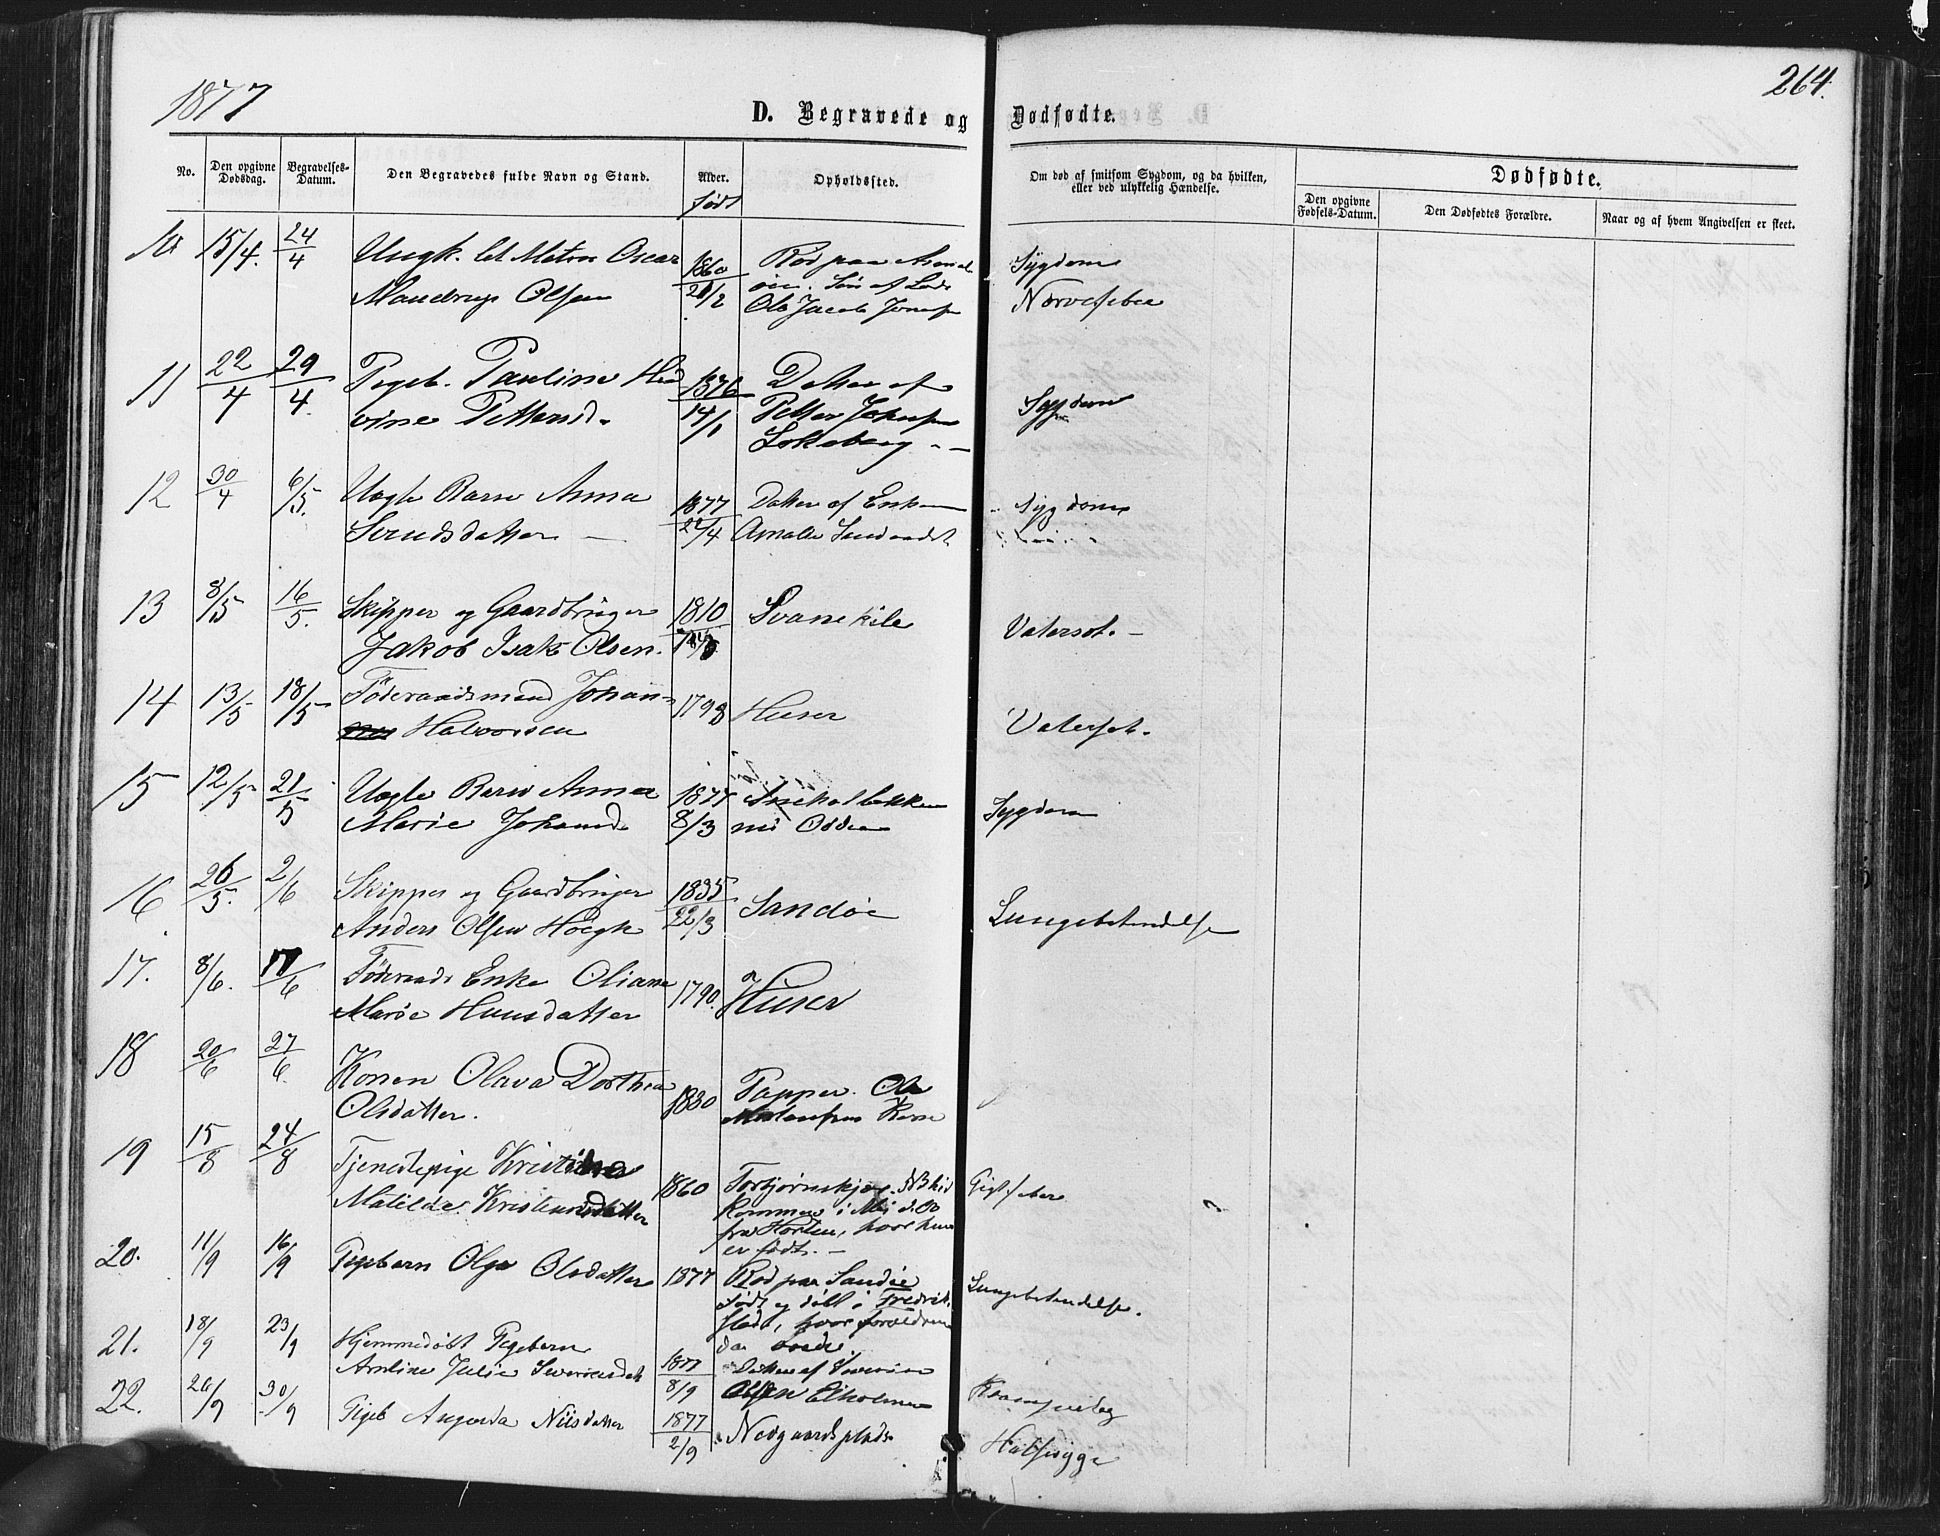 1877
264.
D. Begravede og Dødfødte.
No. Den opgivne Dødsdag. Begravelses-Datum. Den Begravedes fulde Navn og Stand. Alder. født Opholdssted. Om død af smitsom Sygdom, og da hvilken, eller ved ulykkelig Hændelse. Dødfødte.
Den opgivne Fødsels-Datum. Den Dødfødtes Forældre. Naar og af hvem Angivelsen er skeet.
10 15/4. 24/4 Ungk. Oscar 1860 Rød paa Asmal Sygdom
Mandrup Olsen /2 øen. Søn af Lods Nervefeber
Ole Jacob
11 22/4 29/4. Pigeb. Pauline Hed 1876 Datter af Sygdom
vine Pettersd. 14/1 Petter
Løkeberg
12 30/4 6/5. Uægte Barn Anna 1877 Datter af Enken Sygdom
/4 Amalie
13 8/5 16/5. Skipper og Gaardbruger 1810 Svanekile Vatersot.
Jakob Isak Olsen.
14 13/5 18/5 Föderaadsmand Johan= 1798 Huser Vatersot.
Halvorsen
15 12/5 21/5 Uægte Barn Anna 1877
Marie Johansd. 8/3 Odden Sygdom
16 26/5. 2/6 Skipper og Gaardbruger 1835 Sandöe Lungebetendelse
Anders Olsen Höegh 22/3
17. 8/6. 17/6 Föderaads Enke Oliana 1790. Huser
Marie Hansdatter
18 20/6 27/6. Konen Olava Dorthea 1830 Papper. Ole
Olsdatter. Kone
19 15/8 24/8 Tjenestepige Kristine 1860 Torbjørnskjær. NB hid Gigtfeber
Matilde Kristiansdatter kommen i Mai d. Aa
fra Horten, hvor hun
er født.
20. 11/9 16/9 Pigebarn Olga Olsdatter 1877 Rød paa Sandöe Lungebetendelse.
født og døbt i Fredrik
stad, hvor forældrene
da
21. 18/9 23/9 Hjemmedøbt Pigebarn 1877 Datter af Severin
Amline Julie 8/9 Olsen Krampetilf
22. 26/9 30/9 Pigeb Nilsdatter 1877 Nedgaardsplads Halssyge
2/9